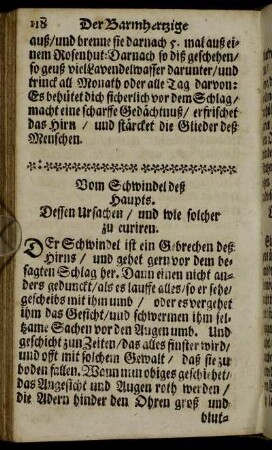 118 Der Barmhertzige
auß/und brenne sie darnach 5. mal auß ei-
nem Rosenhut: Darnach so diß geschehen/
so geuß viel Lavendelwasser darunter/und
trinck all Monath oder alle Tag darvon:
Es behütet dich sicherlich vor dem Schlag/
macht eine scharffe Gedächtnuß/ erfrischet
das Hirn / und stärcket die Glieder deß
Menschen.
Vom Schwindel deß
Haupts.
Dessen Ursachen / und wie solcher
zu curiren.
DEr Schwindel ist ein Gebrechen deß
Hirns / und gehet gern vor dem be-
sagten Schlag her. Dann einen nicht an-
ders gedunckt/als es lauffe alles/ so er sehe/
gescheibs mit ihm umb / oder es vergehet
ihm das Gesicht/und schwermen ihm sel-
tzame Sachen vor den Augen umb. Und
geschicht zun Zeiten/das alles finster wird/
und offt mit solchem Gewalt / daß sie zu
boden fallen. Wann nun obiges geschiehet/
das Angesicht und Augen roth werden /
die Adern hinder den Ohren groß und
blut-